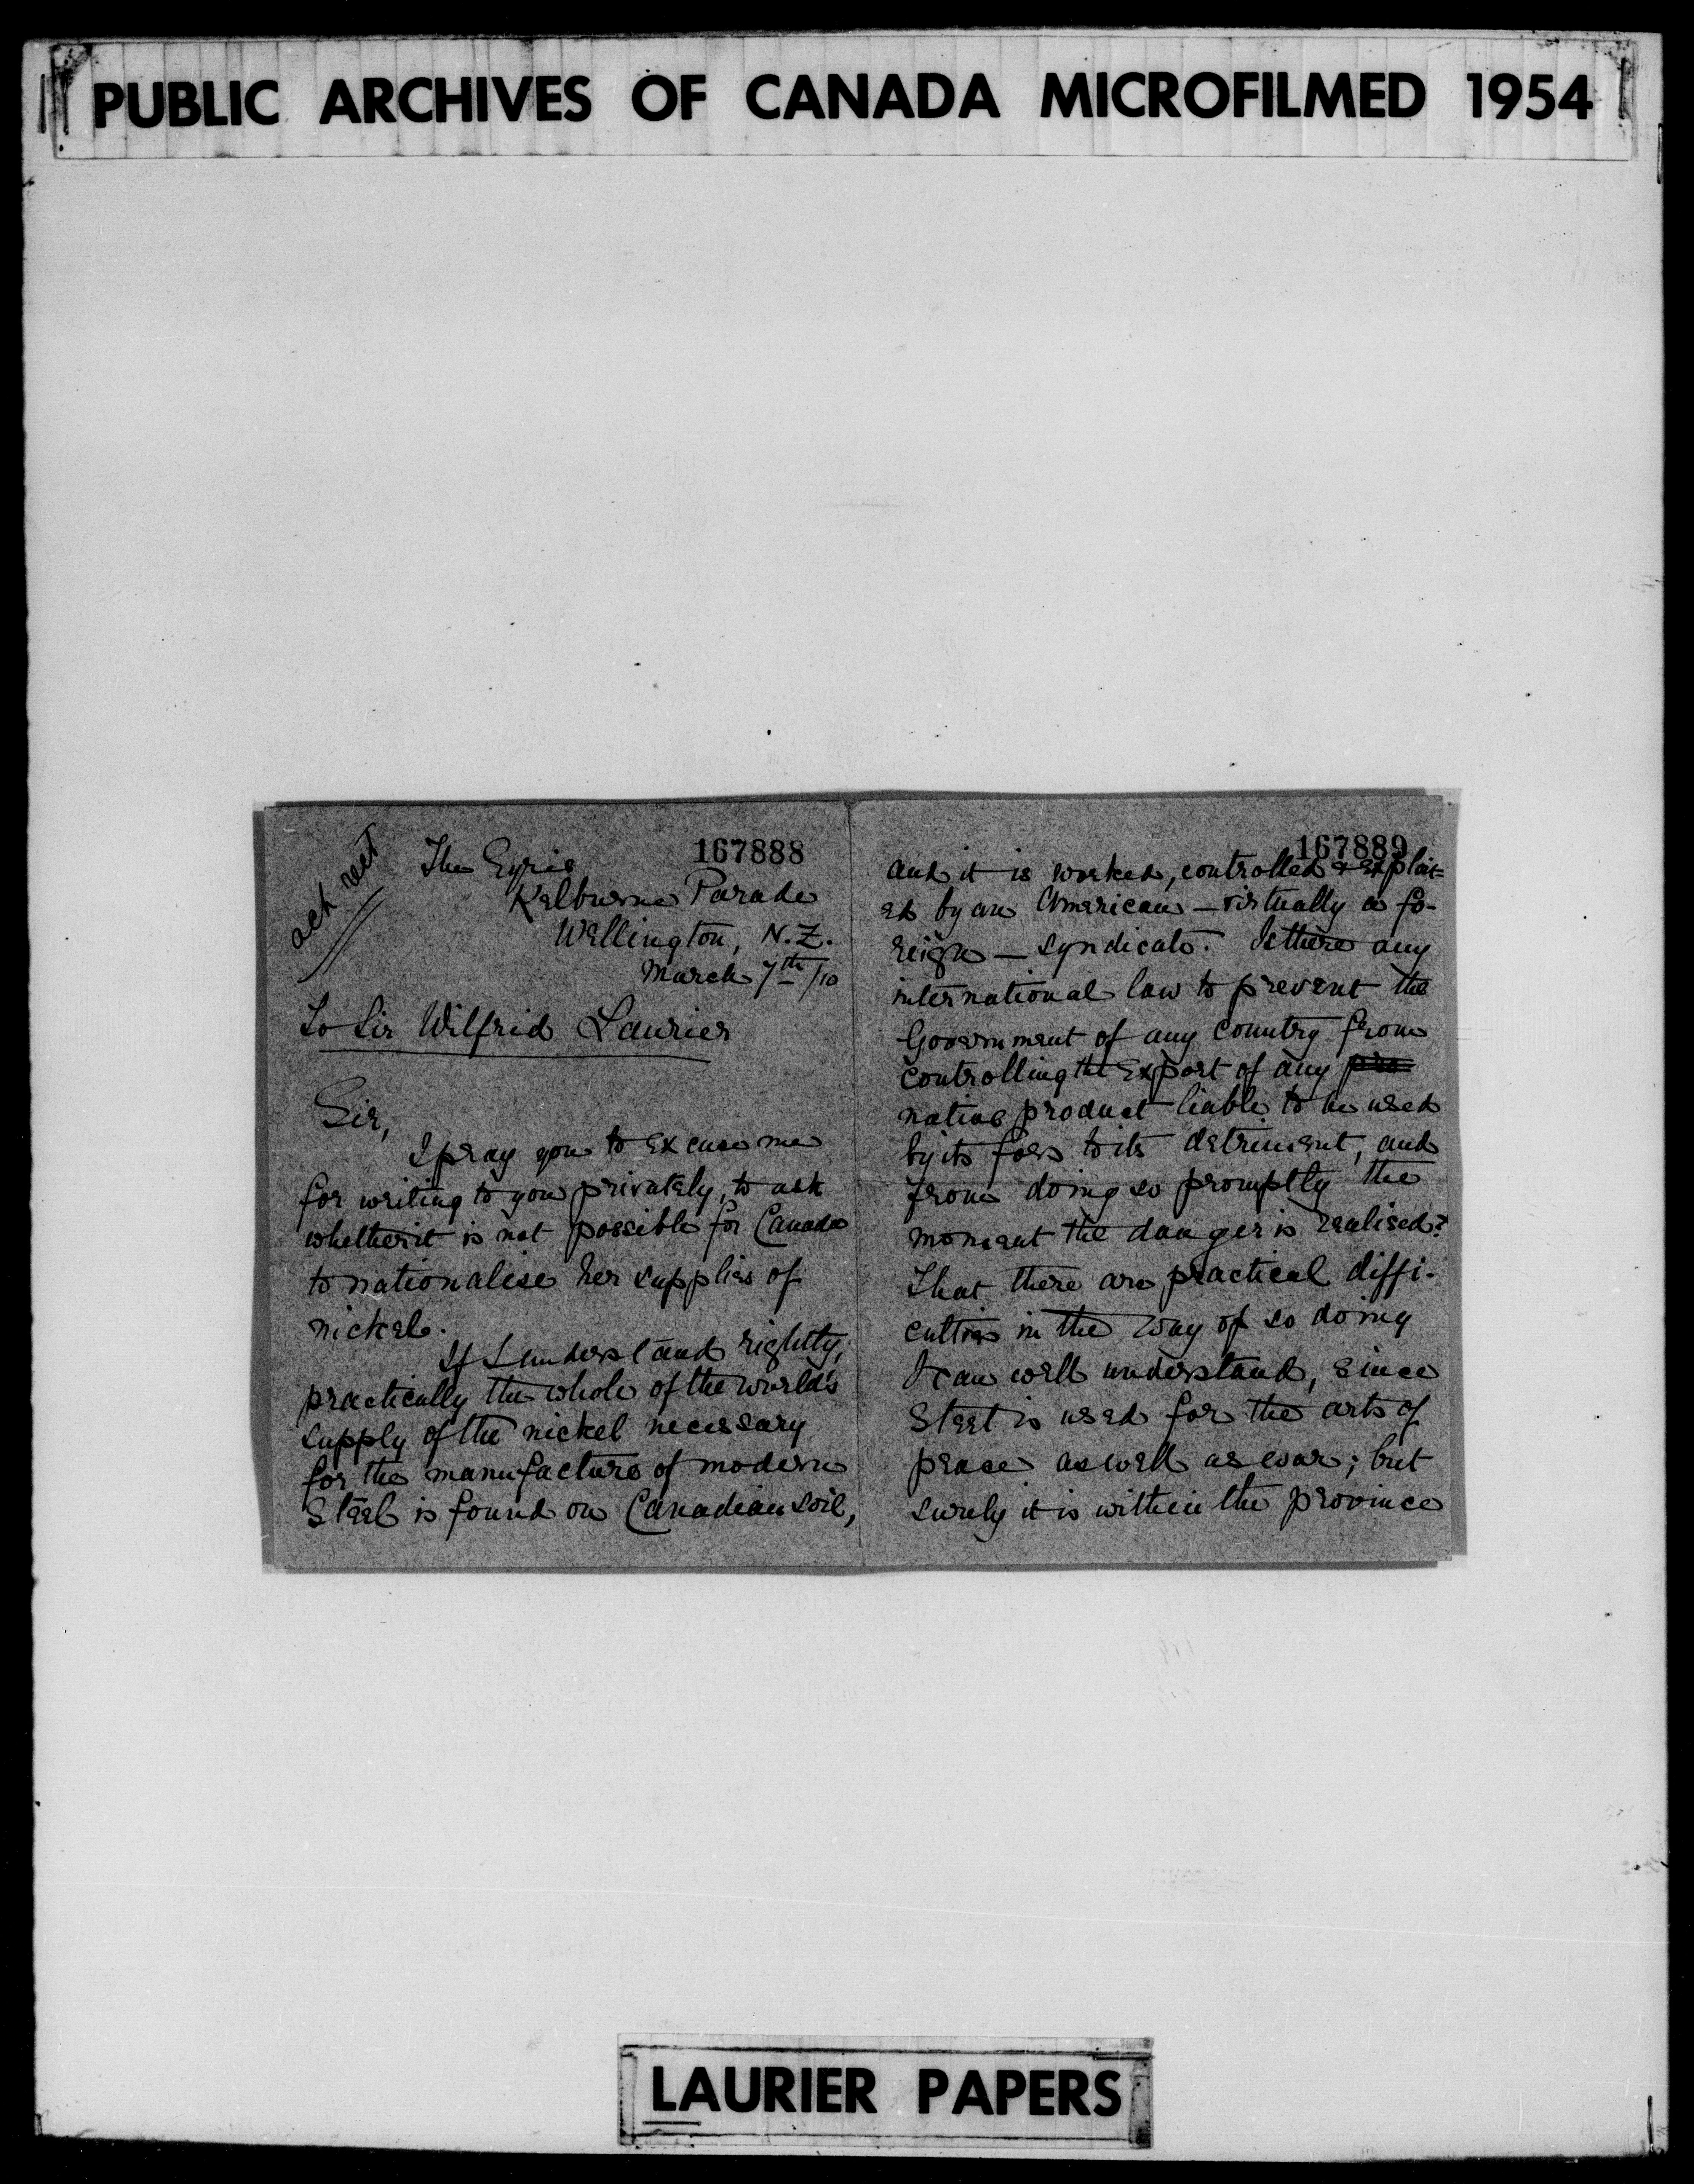 PUBLIC ARCHIVES OF CANADA MICROFILMED 1954
167888
ack rect
The Eyrie
Kelburne Parade
Wellington, N.Z.
March 7th/10
To Sir Wilfrid Laurier
Sir,
I pray you to excuse me
for writing to you privately, to ask
whether it is not possible for Canada
to nationalise her supplies of
nickel.
If I understand rightly,
practically the whole of the world's
supply of the nickel necessary
for the manufacture of modern
Steel is found on Canadian soil,
167889
and it is worked, controlled & exploit=
ed by an American — virtually a fo-
reign — syndicate. Is there any
international law to prevent the
Government of any country from
controlling the export of any pro
native product liable to be used
by its foes to its detriment, and
from doing so promptly the
moment the danger is realised?
That there are practical diffi-
culties in the way of so doing
I can well understand, since
Steel is used for the arts of
peace as well as war; but
surely it is within the province
LAURIER PAPERS